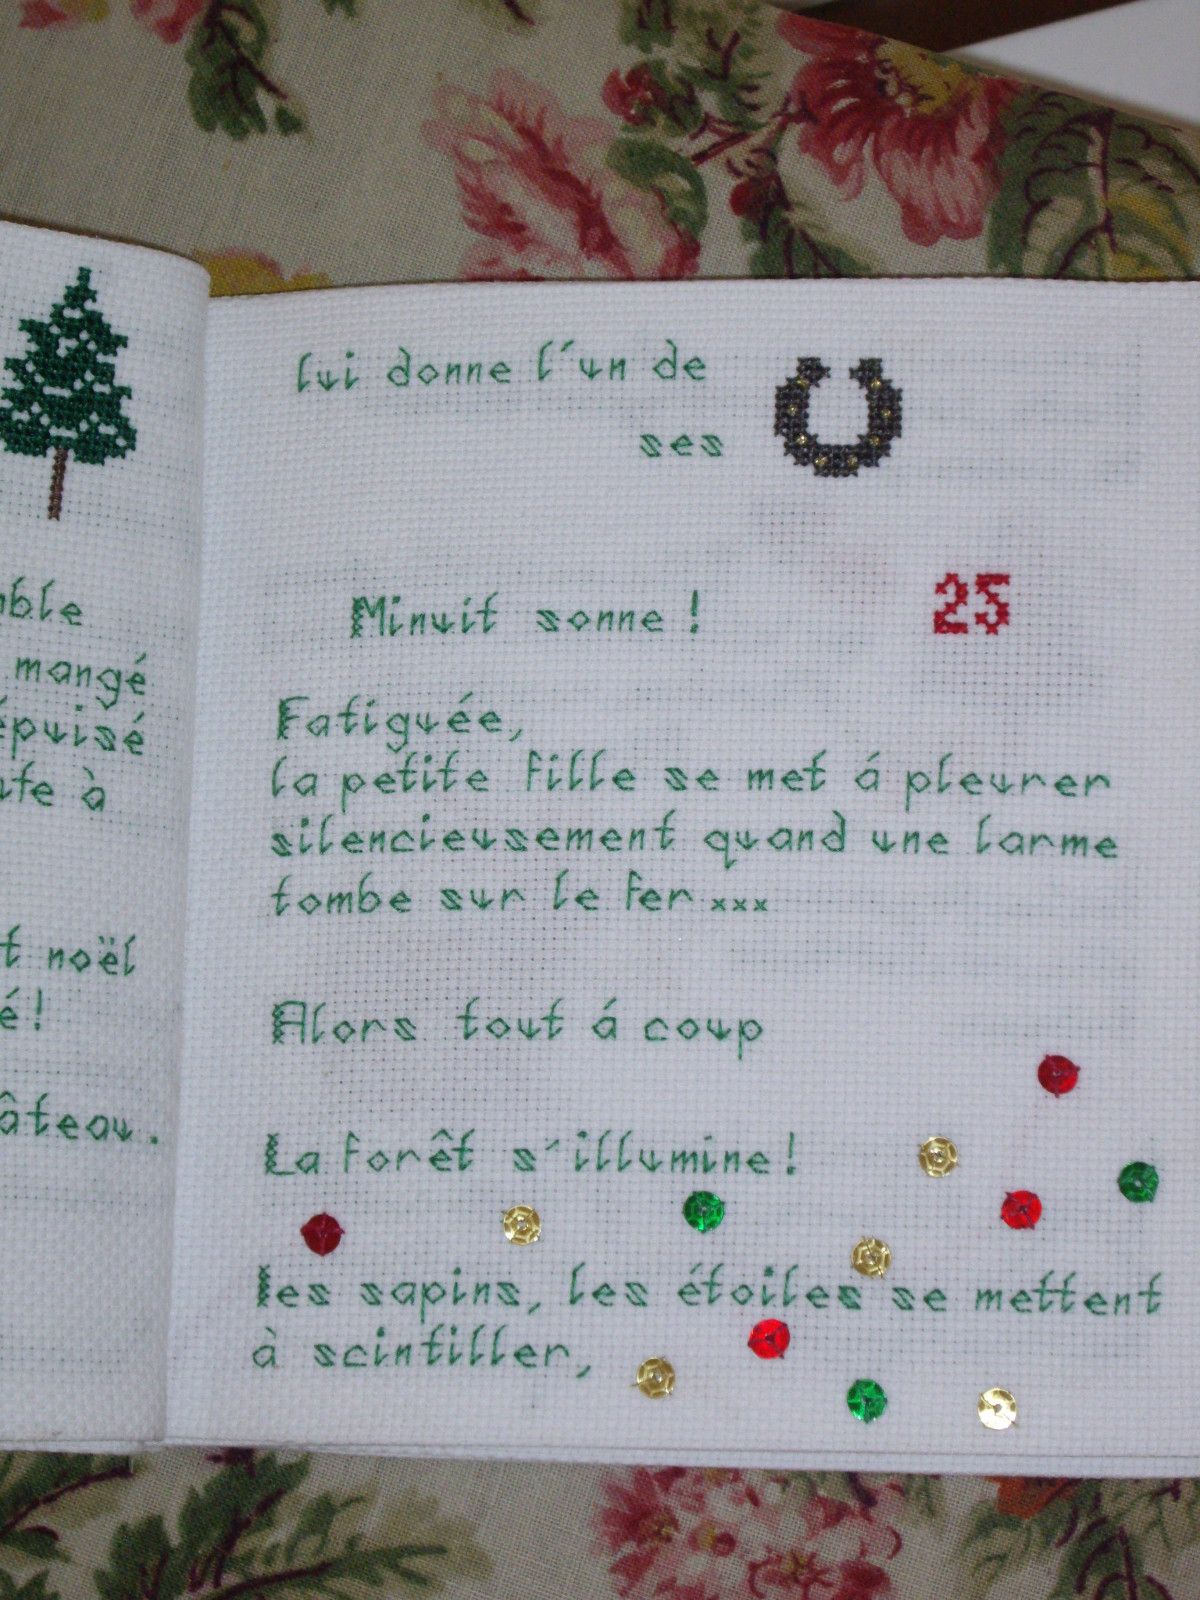 mangé
épuisé
à
noël
é!
lui donne l'un de
ses
Minuit sonne !
25
Fatiguée,
la petite fille se met á pleurer
silencieusement quand une larme
tombe sur le fer xxx
Alors tout á coup
La forêt s'illumine!
les sapins, les étoiles se mettent
à scintiller,